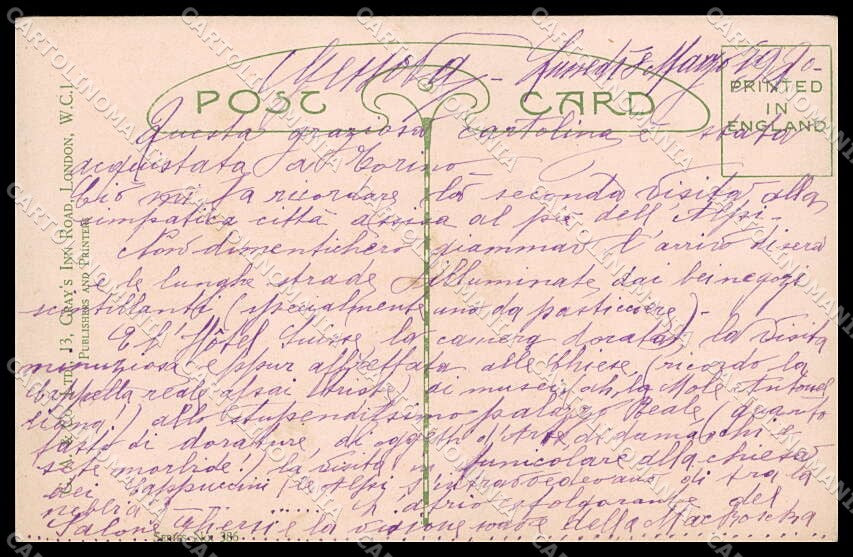 Messina - Lunedì 8 Marzo 1920 -
POST CARD
PRINTED
IN
ENGLAND
Questa graziosa cartolina è stata
acquistata a Torino
Ciò mi fa ricordare la seconda visita alla
simpatica città assisa al piè dell'Alpi -
Non dimenticherò giammai l'arrivo di sera
e le lunghe strade illuminate dai bei negozi
scintillanti (specialmente uno da pasticciere) -
E l'Hôtel Suisse la camera dorata, la visita
minuziosa eppur affrettata alle Chiese (ricordo la
Cappella reale assai triste) di musei (ah, la Mole Antonel
liana!) allo stupendissimo palazzo Reale (quanto
fasto di dorature di oggetti d'Arte di damaschi e
sete morbide!) la visita in funicolare alla chiesa
dei Cappuccini (le Alpi s'intravedevano di tra la
nebbia) - ...... L'atrio sfolgorante del
Salone Ghersi e la visione soave della Maschera
G. & Co. LTD., 13, GRAY'S INN ROAD, LONDON, W.C.1.
PUBLISHERS AND PRINTERS
SERIES NO. 386
CARTOLINOMANIA